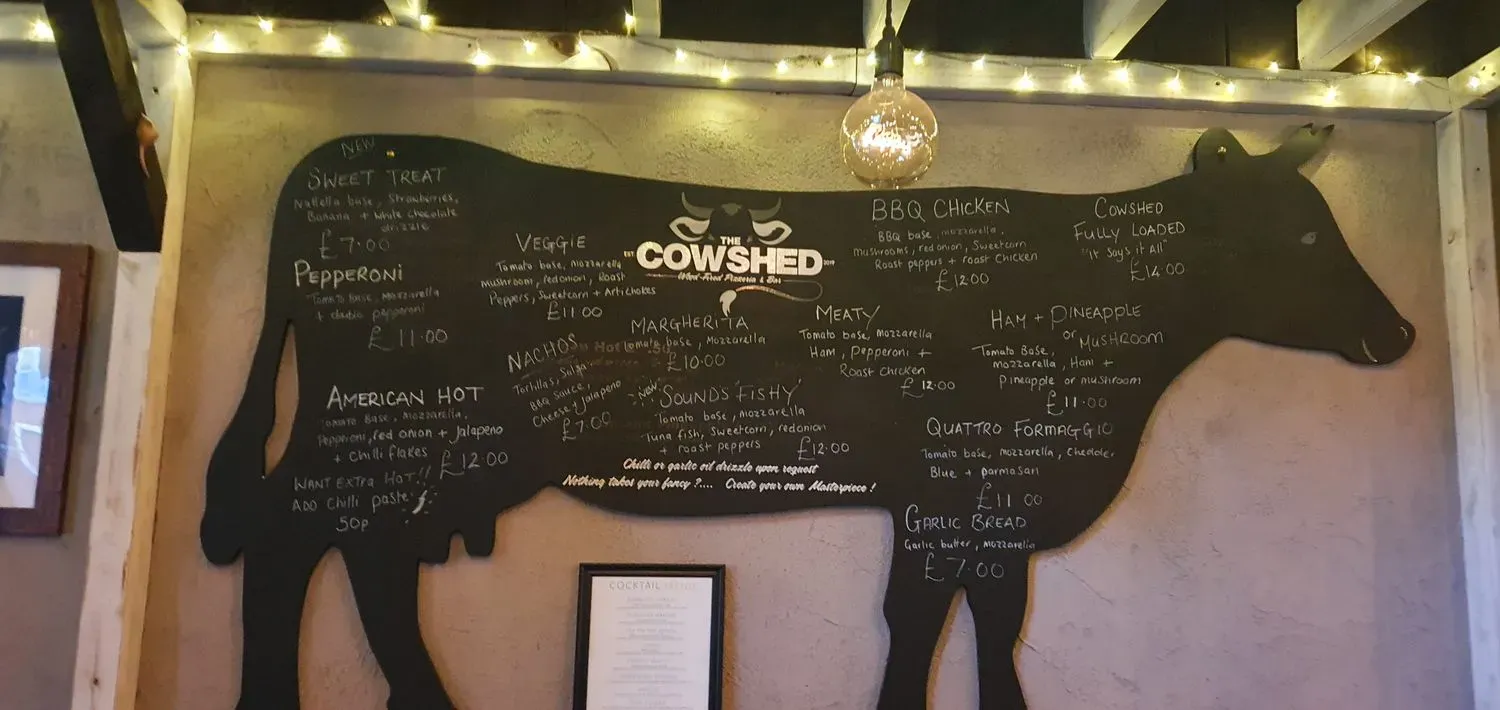 NEW
SWEET TREAT
Nutella base, Strawberries,
Banana + White Chocolate
drizzle
£7.00
PEPPERONI
Tomato Base, Mozzarella
+ double pepperoni
£11.00
AMERICAN HOT
Tomato Base, Mozzarella,
Pepperoni, red onion + Jalapeno
+ Chilli flakes £12.00
WANT EXTRA HOT!!
ADD Chilli paste
50p
VEGGIE
Tomato base, mozzarella
mushroom, red onion, Roast
Peppers, Sweetcorn + Artichokes
£11.00
NACHOS
Tortillas, Salsa
BBQ Sauce,
Cheese + Jalapeno
£7.00
EST THE 2019
COWSHED
Wood-Fired Pizzeria & Bar
MARGHERITA
Tomato base, Mozzarella
£10.00
NEW
'SOUNDS FISHY'
Tomato base, mozzarella
Tuna fish, Sweetcorn, redonion
+ roast peppers £12.00
Chilli or garlic oil drizzle upon request
Nothing takes your fancy?.... Create your own Masterpiece!
BBQ CHICKEN
BBQ base, mozzarella,
mushrooms, red onion, Sweetcorn
Roast peppers + roast Chicken
£12.00
MEATY
Tomato base, Mozzarella
Ham, Pepperoni +
Roast Chicken
£12.00
COWSHED
FULLY LOADED
"It Says it All"
£14.00
HAM + PINEAPPLE
or MUSHROOM
Tomato Base,
mozzarella, Ham +
Pineapple or mushroom
£11.00
QUATTRO FORMAGGIO
Tomato base, mozzarella, Cheddar
Blue + parmasan
£11.00
GARLIC BREAD
Garlic butter, mozzarella
£7.00
COCKTAIL